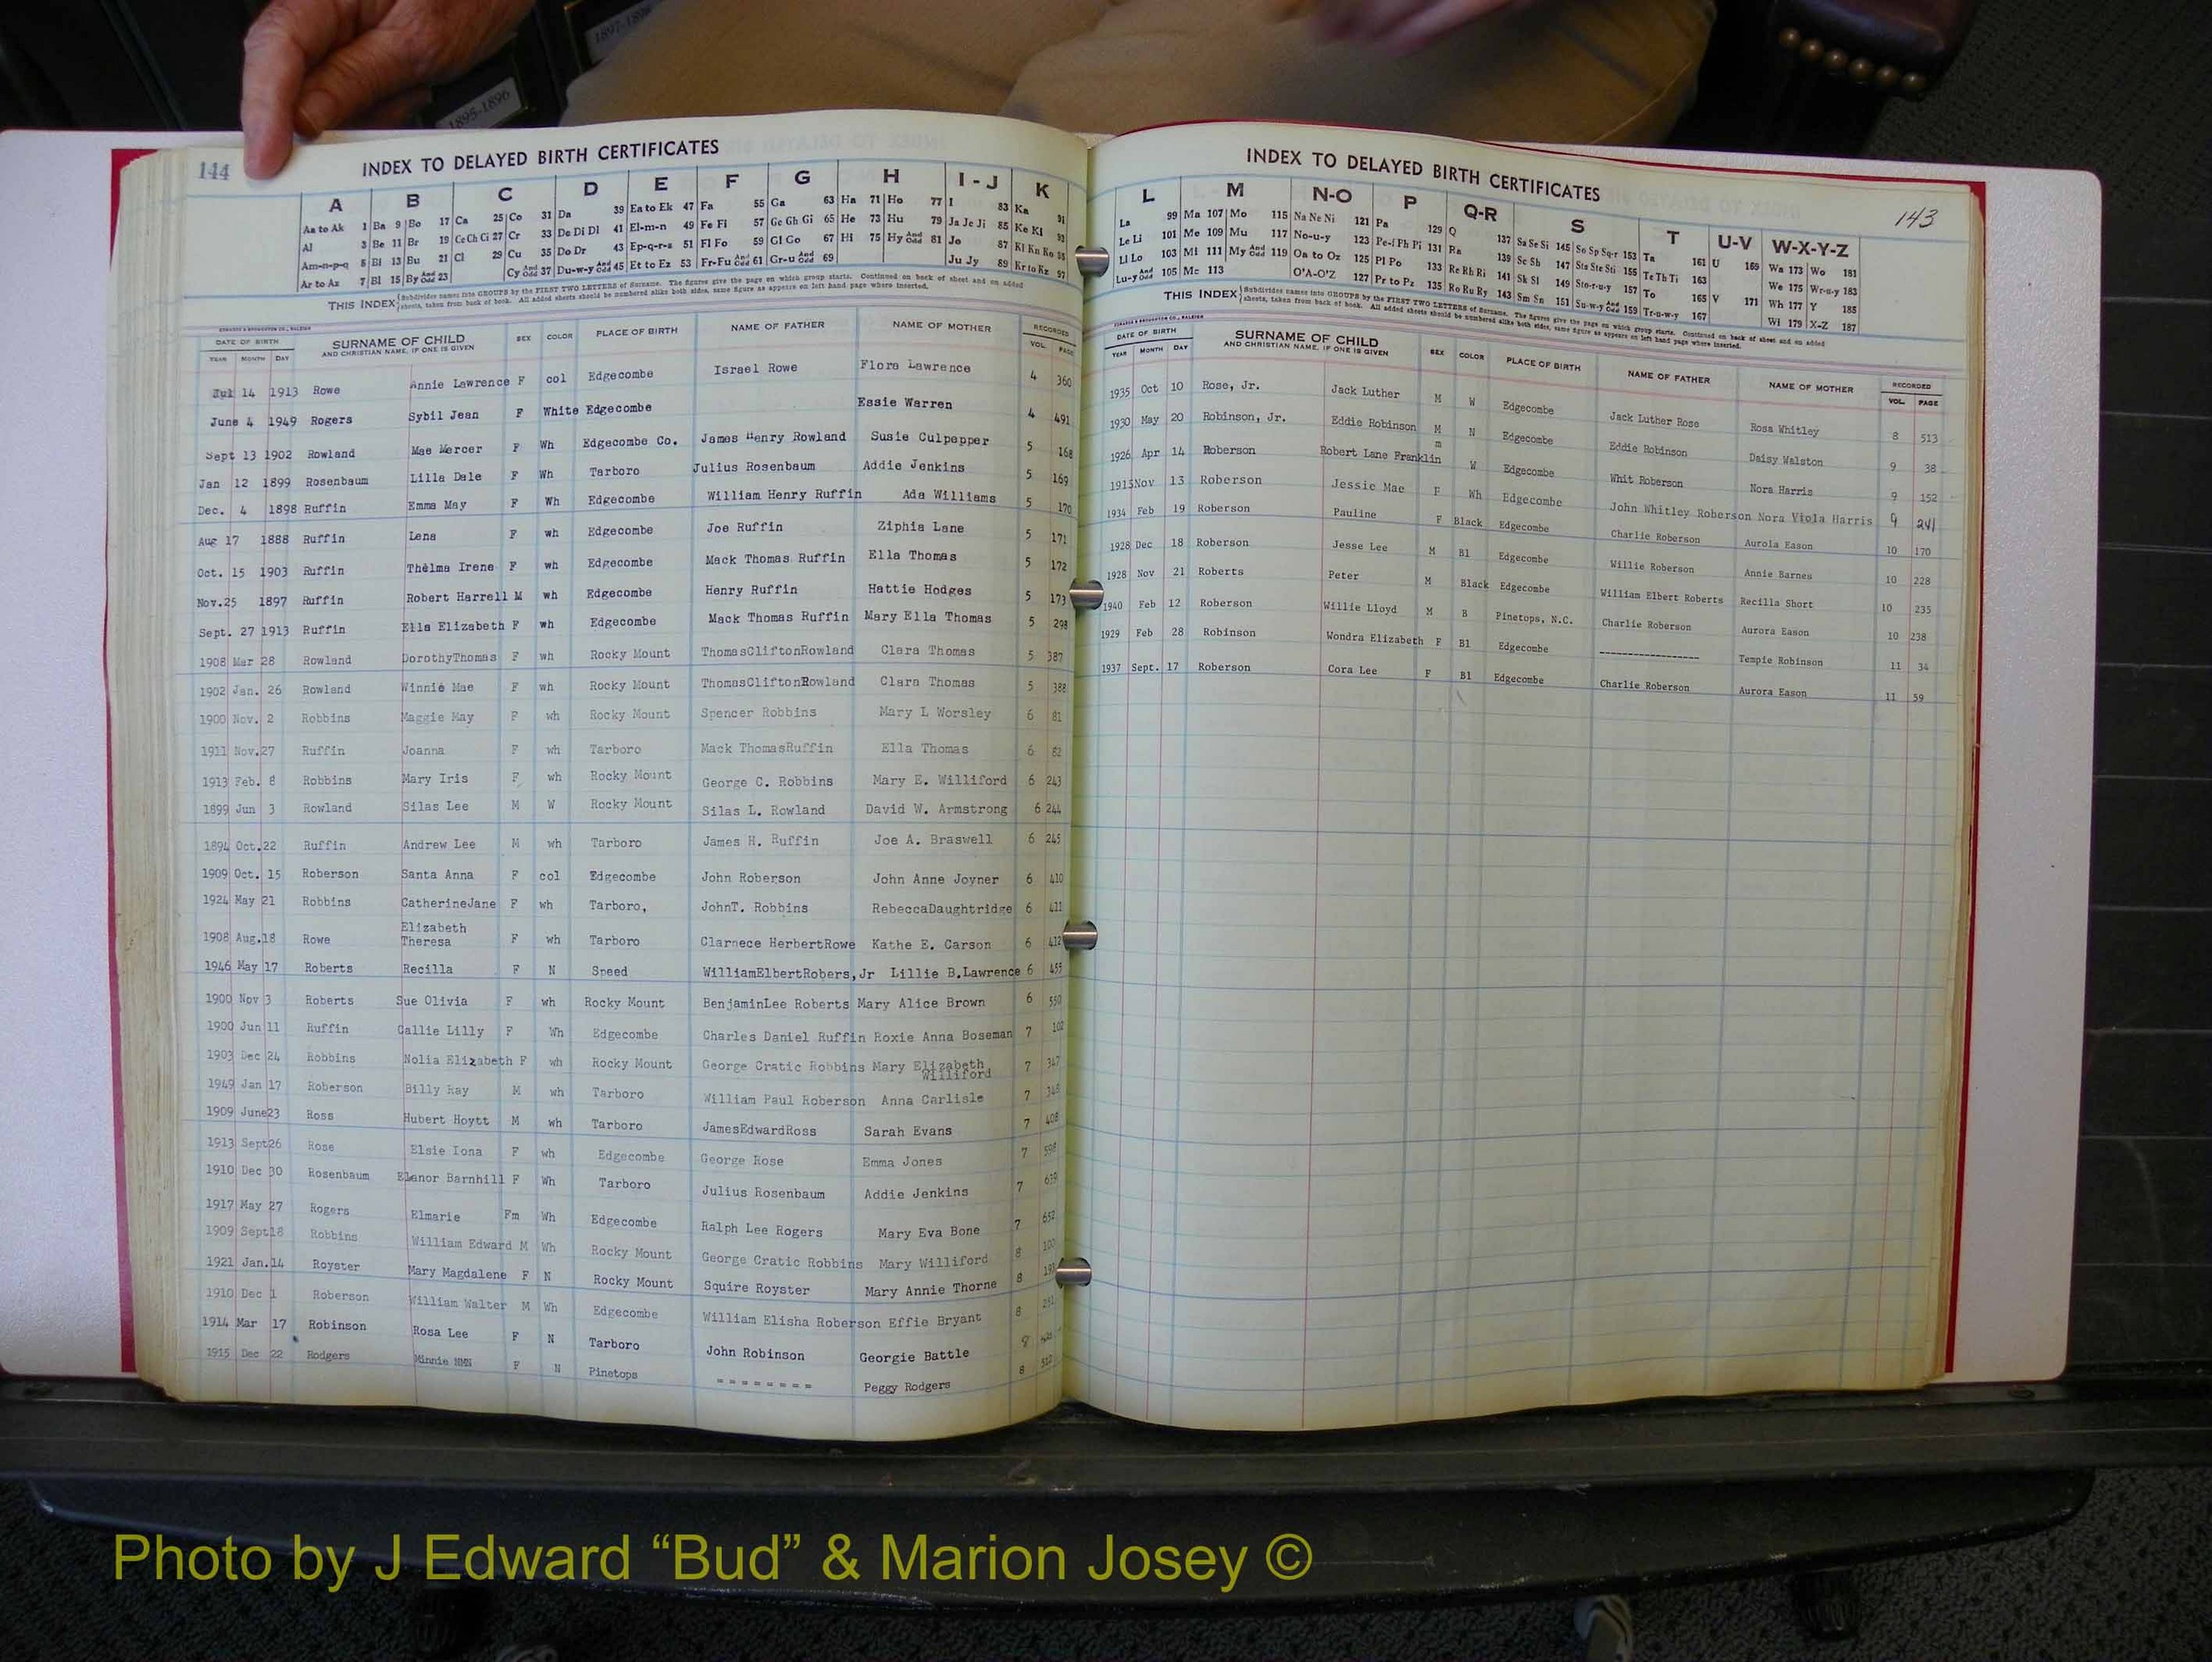 1897-1898
1895-1896
144
INDEX TO DELAYED BIRTH CERTIFICATES
A B C D E F G H I - J K
Aa to Ak 1 Ba 9 Bo 17 Ca 25 Co 31 Da 39 Ea to Ek 47 Fa 55 Ga 63 Ha 71 Ho 77 I 83 Ka 91
Al 3 Be 11 Br 19 Ce Ch Ci 27 Cr 33 De Di Dl 41 El-m-n 49 Fe Fi 57 Ge Gh Gi 65 He 73 Hu 79 Ja Je Ji 85 Ke Kl 93
Am-n-p-q 5 Bi 13 Bu 21 Cl 29 Cu 35 Do Dr 43 Ep-q-r-s 51 Fl Fo 59 Gl Go 67 Hi 75 Hy And Odd 81 Jo 87 Kl Kn Ko 95
Ar to Az 7 Bl 15 By And Odd 23 Cy And Odd 37 Du-w-y And Odd 45 Et to Ez 53 Fr-Fu And Odd 61 Gr-u And Odd 69 Ju Jy 89 Kr to Kz 97
THIS INDEX Subdivides names into GROUPS by the FIRST TWO LETTERS of Surname. The figures give the page on which group starts. Continued on back of sheet and on added
sheets, taken from back of book. All added sheets should be numbered alike both sides, same figure as appears on left hand page where inserted.
DATE OF BIRTH SURNAME OF CHILD SEX COLOR PLACE OF BIRTH NAME OF FATHER NAME OF MOTHER RECORDED
YEAR MONTH DAY AND CHRISTIAN NAME, IF ONE IS GIVEN VOL. PAGE
Jul 14 1913 Rowe Annie Lawrence F col Edgecombe Israel Rowe Flora Lawrence 4 360
June 4 1949 Rogers Sybil Jean F White Edgecombe Essie Warren 4 491
Sept 13 1902 Rowland Mae Mercer F Wh Edgecombe Co. James Henry Rowland Susie Culpepper 5 168
Jan 12 1899 Rosenbaum Lilla Dale F Wh Tarboro Julius Rosenbaum Addie Jenkins 5 169
Dec. 4 1898 Ruffin Emma May F Wh Edgecombe William Henry Ruffin Ada Williams 5 170
Aug 17 1888 Ruffin Lena F wh Edgecombe Joe Ruffin Ziphia Lane 5 171
Oct. 15 1903 Ruffin Thelma Irene F wh Edgecombe Mack Thomas Ruffin Ella Thomas 5 172
Nov.25 1897 Ruffin Robert Harrell M wh Edgecombe Henry Ruffin Hattie Hodges 5 173
Sept. 27 1913 Ruffin Ella Elizabeth F wh Edgecombe Mack Thomas Ruffin Mary Ella Thomas 5 298
1908 Mar 28 Rowland DorothyThomas F wh Rocky Mount ThomasCliftonRowland Clara Thomas 5 387
1902 Jan. 26 Rowland Winnie Mae F wh Rocky Mount ThomasCliftonRowland Clara Thomas 5 388
1900 Nov. 2 Robbins Maggie May F wh Rocky Mount Spencer Robbins Mary L Worsley 6 81
1911 Nov.27 Ruffin Joanna F wh Tarboro Mack ThomasRuffin Ella Thomas 6 82
1913 Feb. 8 Robbins Mary Iris F wh Rocky Mount George C. Robbins Mary E. Williford 6 243
1899 Jun 3 Rowland Silas Lee M W Rocky Mount Silas L. Rowland David W. Armstrong 6 244
1894 Oct.22 Ruffin Andrew Lee M wh Tarboro James H. Ruffin Joe A. Braswell 6 245
1909 Oct. 15 Roberson Santa Anna F col Edgecombe John Roberson John Anne Joyner 6 410
1924 May 21 Robbins CatherineJane F wh Tarboro, JohnT. Robbins RebeccaDaughtridge 6 411
Elizabeth
1908 Aug.18 Rowe Theresa F wh Tarboro Clarnece HerbertRowe Kathe E. Carson 6 412
1946 May 17 Roberts Recilla F N Speed WilliamElbertRobers,Jr Lillie B.Lawrence 6 455
1900 Nov 3 Roberts Sue Olivia F wh Rocky Mount BenjaminLee Roberts Mary Alice Brown 6 550
1900 Jun 11 Ruffin Callie Lilly F Wh Edgecombe Charles Daniel Ruffin Roxie Anna Boseman 7 102
1903 Dec 24 Robbins Nolia Elizabeth F wh Rocky Mount George Cratic Robbins Mary Elizabeth 7 347
Williford
1949 Jan 17 Roberson Billy Ray M wh Tarboro William Paul Roberson Anna Carlisle 7 348
1909 June23 Ross Hubert Hoytt M wh Tarboro JamesEdwardRoss Sarah Evans 7 408
1913 Sept26 Rose Elsie Iona F wh Edgecombe George Rose Emma Jones 7 598
1910 Dec 30 Rosenbaum Elanor Barnhill F Wh Tarboro Julius Rosenbaum Addie Jenkins 7 639
1917 May 27 Rogers Elmarie Fm Wh Edgecombe Ralph Lee Rogers Mary Eva Bone 7 652
1909 Sept18 Robbins William Edward M Wh Rocky Mount George Cratic Robbins Mary Williford 8 100
1921 Jan.14 Royster Mary Magdalene F N Rocky Mount Squire Royster Mary Annie Thorne 8
1910 Dec 1 Roberson William Walter M Wh Edgecombe William Elisha Roberson Effie Bryant 8 251
1914 Mar 17 Robinson Rosa Lee F N Tarboro John Robinson Georgie Battle
1915 Dec 22 Rodgers Minnie NMN F N Pinetops = = = = = = = = Peggy Rodgers 8 512
INDEX TO DELAYED BIRTH CERTIFICATES
143
L M N-O P Q-R S T U-V W-X-Y-Z
La 99 Ma 107 Mo 115 Na Ne Ni 121 Pa 129 Q 137 Sa Se Si 145 So Sp Sq-r 153 Ta 161 U 169 Wa 173 Wo 181
Le Li 101 Me 109 Mu 117 No-u-y 123 Pe-f Ph Pi 131 Ra 139 Sc Sh 147 Sta Ste Sti 155 Te Th Ti 163 We 175 Wr-u-y 183
Ll Lo 103 Mi 111 My And Odd 119 Oa to Oz 125 Pl Po 133 Re Rh Ri 141 Sk Sl 149 Sto-r-u-y 157 To 165 V 171 Wh 177 Y 185
Lu-y And Odd 105 Mc 113 O'A-O'Z 127 Pr to Pz 135 Ro Ru Ry 143 Sm Sn 151 Su-w-y And Odd 159 Tr-u-w-y 167 Wi 179 X-Z 187
THIS INDEX Subdivides names into GROUPS by the FIRST TWO LETTERS of Surname. The figures give the page on which group starts. Continued on back of sheet and on added
sheets, taken from back of book. All added sheets should be numbered alike both sides, same figure as appears on left hand page where inserted.
DATE OF BIRTH SURNAME OF CHILD SEX COLOR PLACE OF BIRTH NAME OF FATHER NAME OF MOTHER RECORDED
YEAR MONTH DAY AND CHRISTIAN NAME, IF ONE IS GIVEN VOL. PAGE
1935 Oct 10 Rose, Jr. Jack Luther M W Edgecombe Jack Luther Rose Rosa Whitley 8 513
1930 May 20 Robinson, Jr. Eddie Robinson M N Edgecombe Eddie Robinson Daisy Walston 9 38
1926 Apr 14 Roberson Robert Lane Franklin m W Edgecombe Whit Roberson Nora Harris 9 152
1915 Nov 13 Roberson Jessie Mae F Wh Edgecombe John Whitley Roberson Nora Viola Harris 9 241
1934 Feb 19 Roberson Pauline F Black Edgecombe Charlie Roberson Aurola Eason 10 170
1928 Dec 18 Roberson Jesse Lee M Bl Edgecombe Willie Roberson Annie Barnes 10 228
1928 Nov 21 Roberts Peter M Black Edgecombe William Elbert Roberts Recilla Short 10 235
1940 Feb 12 Roberson Willie Lloyd M B Pinetops, N.C. Charlie Roberson Aurora Eason 10 238
1929 Feb 28 Robinson Wondra Elizabeth F Bl Edgecombe ------------------ Tempie Robinson 11 34
1937 Sept. 17 Roberson Cora Lee F Bl Edgecombe Charlie Roberson Aurora Eason 11 59
Photo by J Edward “Bud” & Marion Josey ©